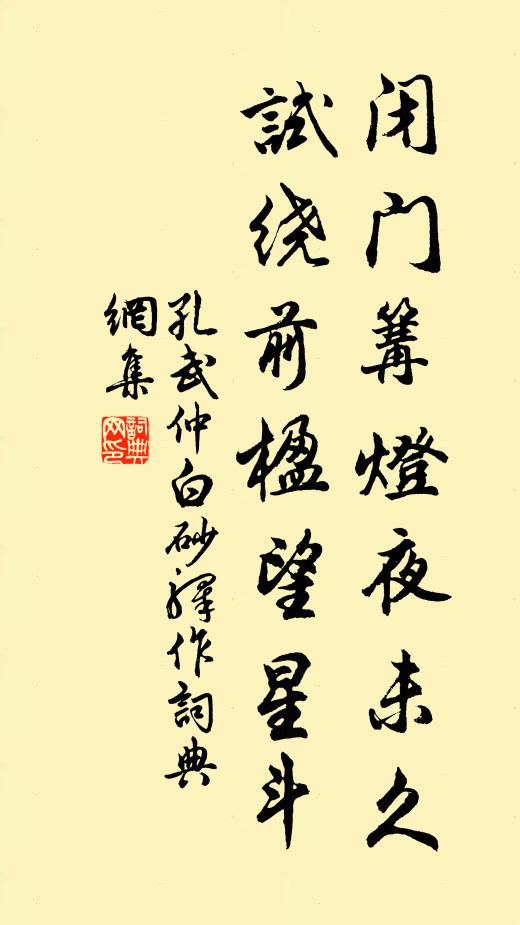 闭门篝燈夜未久
試绕前楹望星斗
孔武仲白砂驛作詞典
網集
詞典
网印